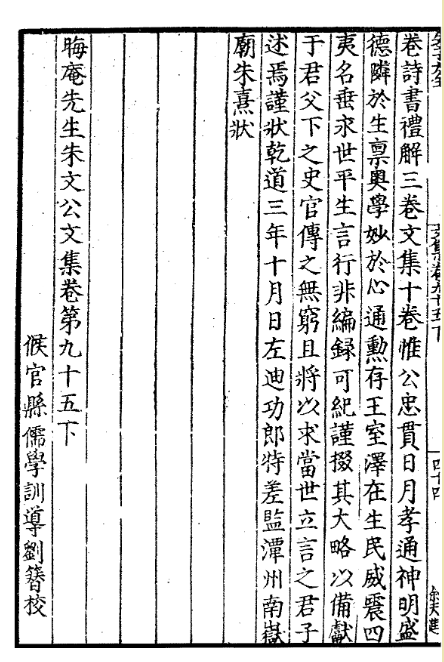 卷詩書禮解三卷文集十卷惟公忠貫日月孝通神明盛
德隣於生稟奧學妙於心通勳存王室澤在生民威震四
夷名垂永世平生言行非編録可紀謹掇其大略以備獻
于君父下之史官傳之無窮且將以求當世立言之君子
述焉謹狀乾道三年十月日左迪功郎特差監潭州南嶽
廟朱熹狀
晦庵先生朱文公文集卷第九十五下
候官縣儒學訓導劉簪校